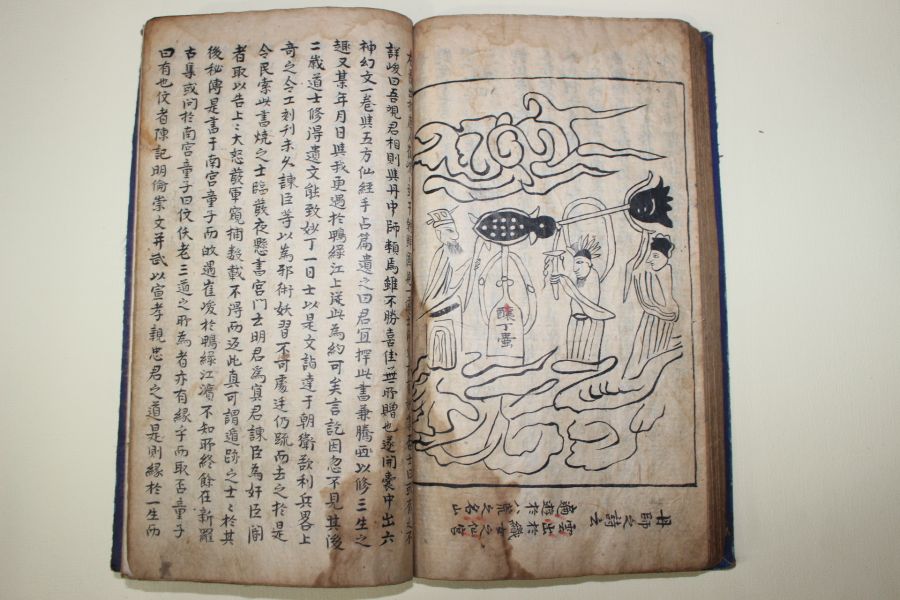 釀丁壺
丹師之詩云
雲出於織女之仙宮
適遊於八荒之名山
詳峻曰吾觀君相則與丹中師賴焉雖不勝喜佳無所贈也遂開囊中出六
神幻文一卷與五方仙經手占篇遺之曰君宜擇此書兼騰西以修三生之
趣又某年月日與我更遇於鴨綠江上從此為約可矣言訖因忽不見其後
二歲道士修得遺文能致妙丁一日士以是文詣達于朝衛欲利兵畧上
奇之令工刻刊未久諫臣等以為邪術妖習不可處廷仍疏而去之於是
令民索此書燒之士臨發夜懸書宮門云明君為寘君諫臣為奸臣閽
者取以告上々大怒發軍窺捕數載不得而及此真可謂遁跡之士々於其
後秘傳是書于南宮童子而啟遇崔瑗於鴨綠江濱不知所終餘在新羅
古集或問於南宮童子曰佼佚老三道之所為者亦有緣乎而取否童子
曰有也佼者陳記明倫崇文并武以宣孝親忠君之道是則緣於一生而